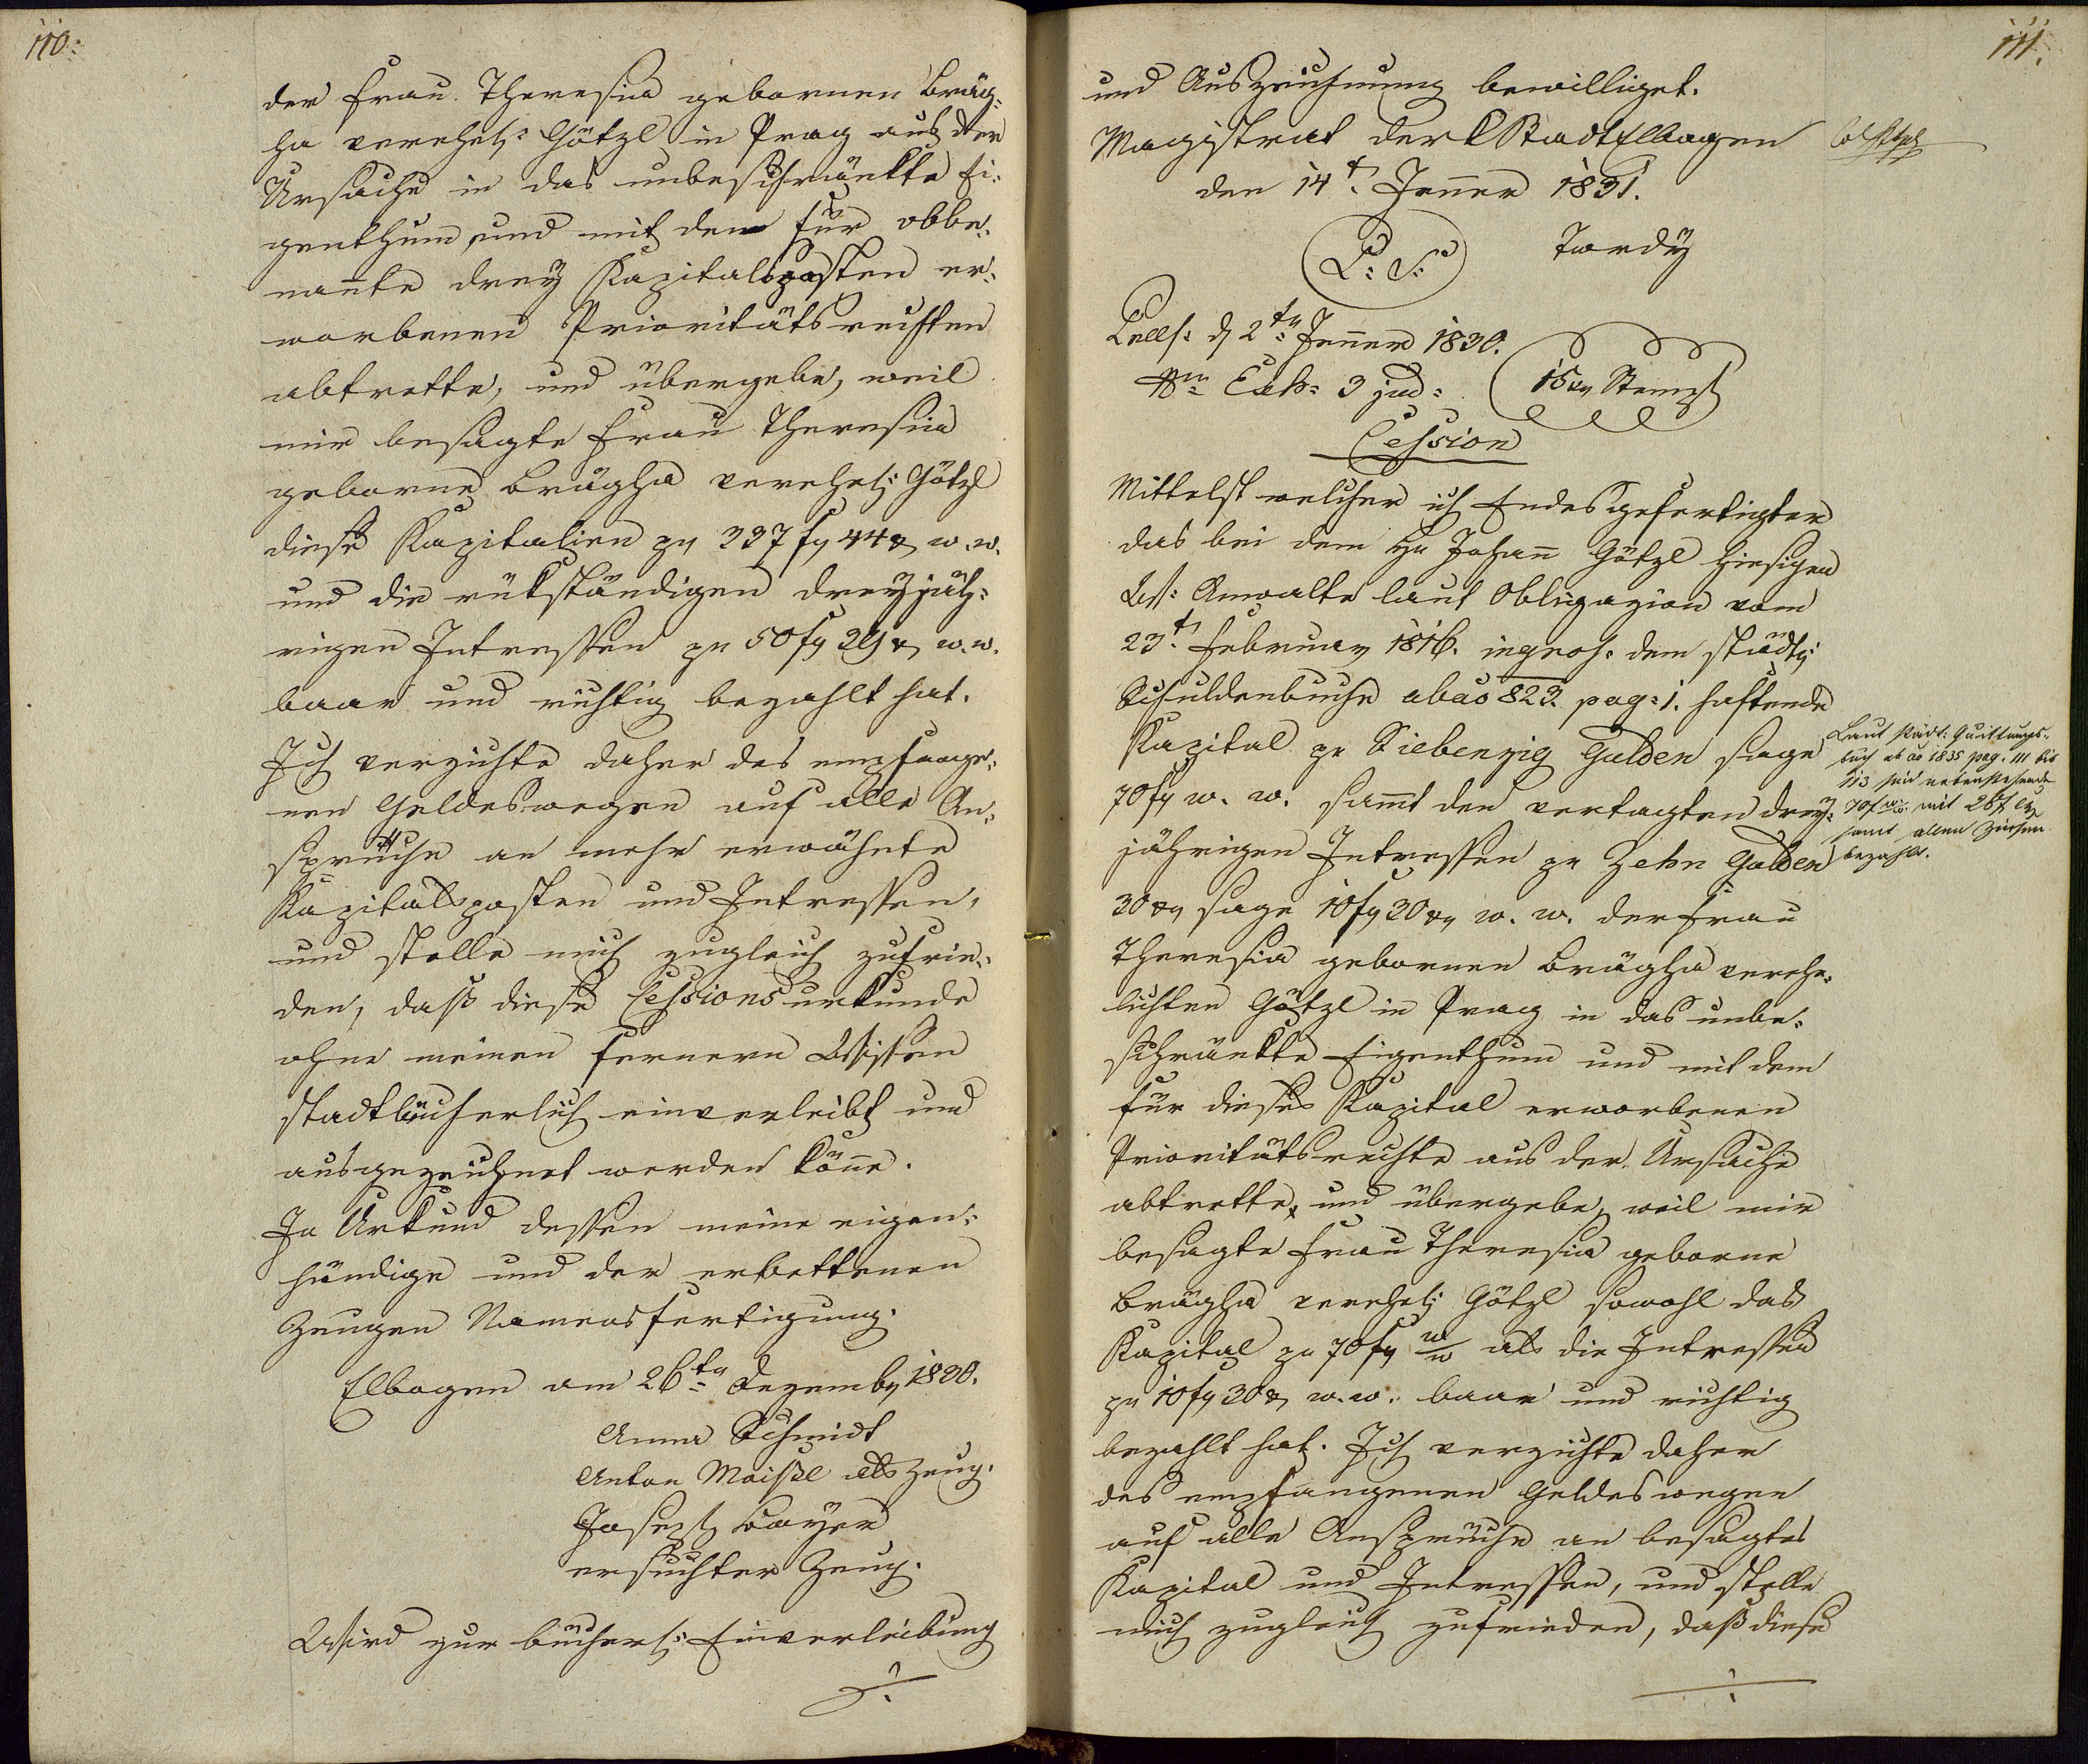 110.
der Frau Theresia gebornen Bräg-
ha verehel: Götzl in Prag aus der
Ursache in das unbeschränkte Ei-
genthum, und mit dem für obbe-
nan̄te drey Kapitalsposten er-
worbenen Prioritätsrechten
abtrette, und übergebe, weil
mir besagte Frau Theresia
geborne Brägha verehel: Götzl
diese Kapitalien pr 337 f 44 x w. w.
und die rükständigen dreyjäh-
rigen Intressen pr 50 f 39 x w. w.
baar und richtig bezahlt hat.
Ich verzichte daher des empfange-
nen Geldeswegen auf alle An-
sprüche an mehr erwähnte
Kapitalsposten und Intressen,
und stelle mich zugleich zufrie-
den, daß diese Cessionsurkunde
ohne meinen fernern Wissen
stadtbücherlich einverleibt und
ausgezeichnet werden kön̄e.
In Urkund dessen meine eigen-
händige und der erbettenen
Zeugen Namensfertigung.
Elbogen am 26ten Dezember 1830.
Anna Schmidt
Anton Maißl als Zeug.
Joseph Bayer
ersuchter Zeug.
Wird zur bücherl: Einverleibung
./.
111.
und Auszeichnung bewilliget.
Magistrat der k Stadt Elbogen
den 14t. Jän̄er 1831.
L: S: Tardy
den 2ten Jen̄er 1830.
3 jud: 15 xr Stempl
Cession
Mittelst welcher ich Endesgefertigter
das bei dem Hr Johan̄ Götzl hiesigen
Anwalte laut Obligazion vom
23t. February 1816. ingros: dem städt:
Schuldenbuche abao 823. pag: 1. haftende
Kapital pr Siebenzig Gulden sage
70 f w. w. sam̄t den vertagten drey-
jährigen Intressen pr Zehn Gulden
30 xr sage 10 f 30 xr w. w. der Frau
Theresia gebornen Brägha verehe-
lichten Götzl in Prag in das unbe-
schränkte Eigenthum und mit dem
für dieses Kapital erworbenen
Prioritätsrechte aus der Ursache
abtrette, und übergebe, weil mir
besagte Frau Theresia geborne
Brägha verehel: Götzl sowohl das
Kapital pr 70 f w/w als die Intressen
pr 10 f 30 x w. w. baar und richtig
bezahlt hat. Ich verzichte daher
des empfangenen Geldeswegen
auf alle Ansprüche an besagtes
Kapital und Intressen, und stelle
mich zugleich zufrieden, daß diese
./.
Laut städt: Quittungs-
buch ab ao 1835 pag. 111 bis
113 sind nebenstehende
70 f w.w. mit 28 f CM
samt allen Zinsen
bezahlt.